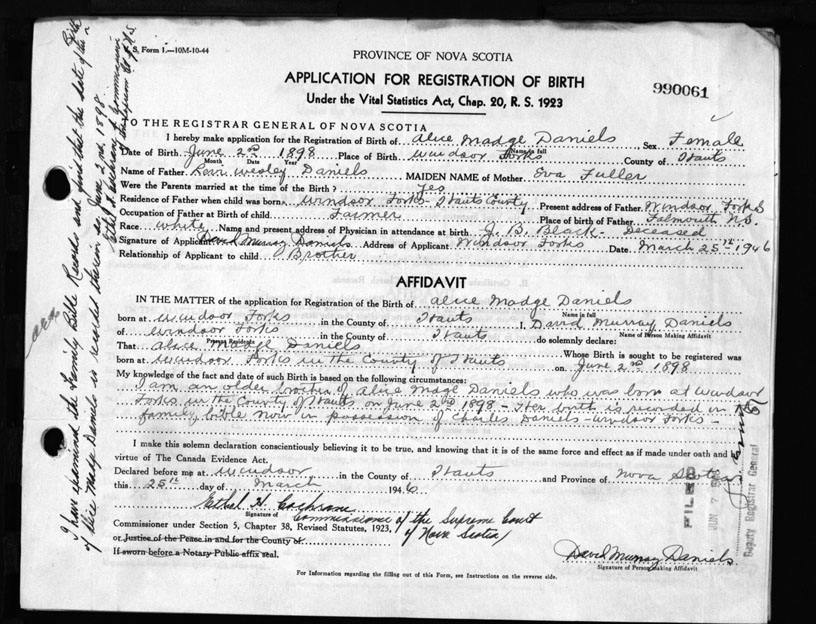 S. Form 1.—10M-10-44
PROVINCE OF NOVA SCOTIA
APPLICATION FOR REGISTRATION OF BIRTH
990061
Under the Vital Statistics Act, Chap. 20, R. S. 1923
TO THE REGISTRAR GENERAL OF NOVA SCOTIA
I hereby make application for the Registration of Birth of Alice Madge Daniels Sex Female
Name in full
Date of Birth June 2nd 1898 Place of Birth Windsor Forks County of Hants
Month Year
Name of Father Wesley Daniels MAIDEN NAME of Mother Eva Fuller
Were the Parents married at the time of the Birth? Yes
Residence of Father when child was born Windsor Forks Hants County Present address of Father Windsor Forks
Occupation of Father at Birth of child Farmer Place of birth of Father Falmouth N.S.
Race White Name and present address of Physician in attendance at birth J. B. Black - Deceased
Signature of Applicant David Murray Daniels Address of Applicant Windsor Forks Date March 25th 1946
Relationship of Applicant to child Brother
AFFIDAVIT
IN THE MATTER of the application for Registration of the Birth of Alice Madge Daniels
Name in full
born at Windsor Forks in the County of Hants I, David Murray Daniels
Name of Person Making Affidavit
of Windsor Forks in the County of Hants do solemnly declare:
That Alice Madge Daniels Whose Birth is sought to be registered was
born at Windsor Forks in the County of Hants on June 2nd 1898
My knowledge of the fact and date of such Birth is based on the following circumstances:
I am an older brother of Alice Madge Daniels who was born at Windsor
Forks in the County of Hants on June 2nd 1898 - Her birth is recorded in the
family bible now in possession of Charles Daniels - Windsor Forks -
I make this solemn declaration conscientiously believing it to be true, and knowing that it is of the same force and effect as if made under oath and by
virtue of The Canada Evidence Act.
Declared before me at Windsor in the County of Hants and Province of Nova Scotia
this 25th day of March 1946
Ethel H. Cochrane
Signature of
Commissioner of the Supreme Court
of Nova Scotia
Commissioner under Section 5, Chapter 38, Revised Statutes, 1923,
or Justice of the Peace in and for the County of
If sworn before a Notary Public affix seal.
David Murray Daniels
Signature of Person Making Affidavit
For Information regarding the filling out of this Form, see Instructions on the reverse side.
I have examined the Family Bible Record and find that the date of the Birth
of Alice Madge Daniels is recorded therein as June 2nd, 1898
Ethel H. Cochrane
FILED
JUN 7
Deputy Registrar General